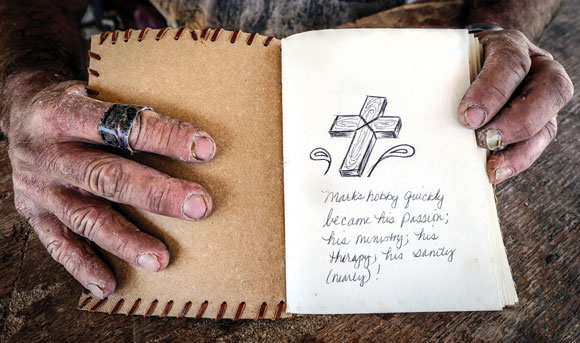 Mark's hobby quickly
became his passion;
his ministry; his
therapy, his sanity
(nearly)!